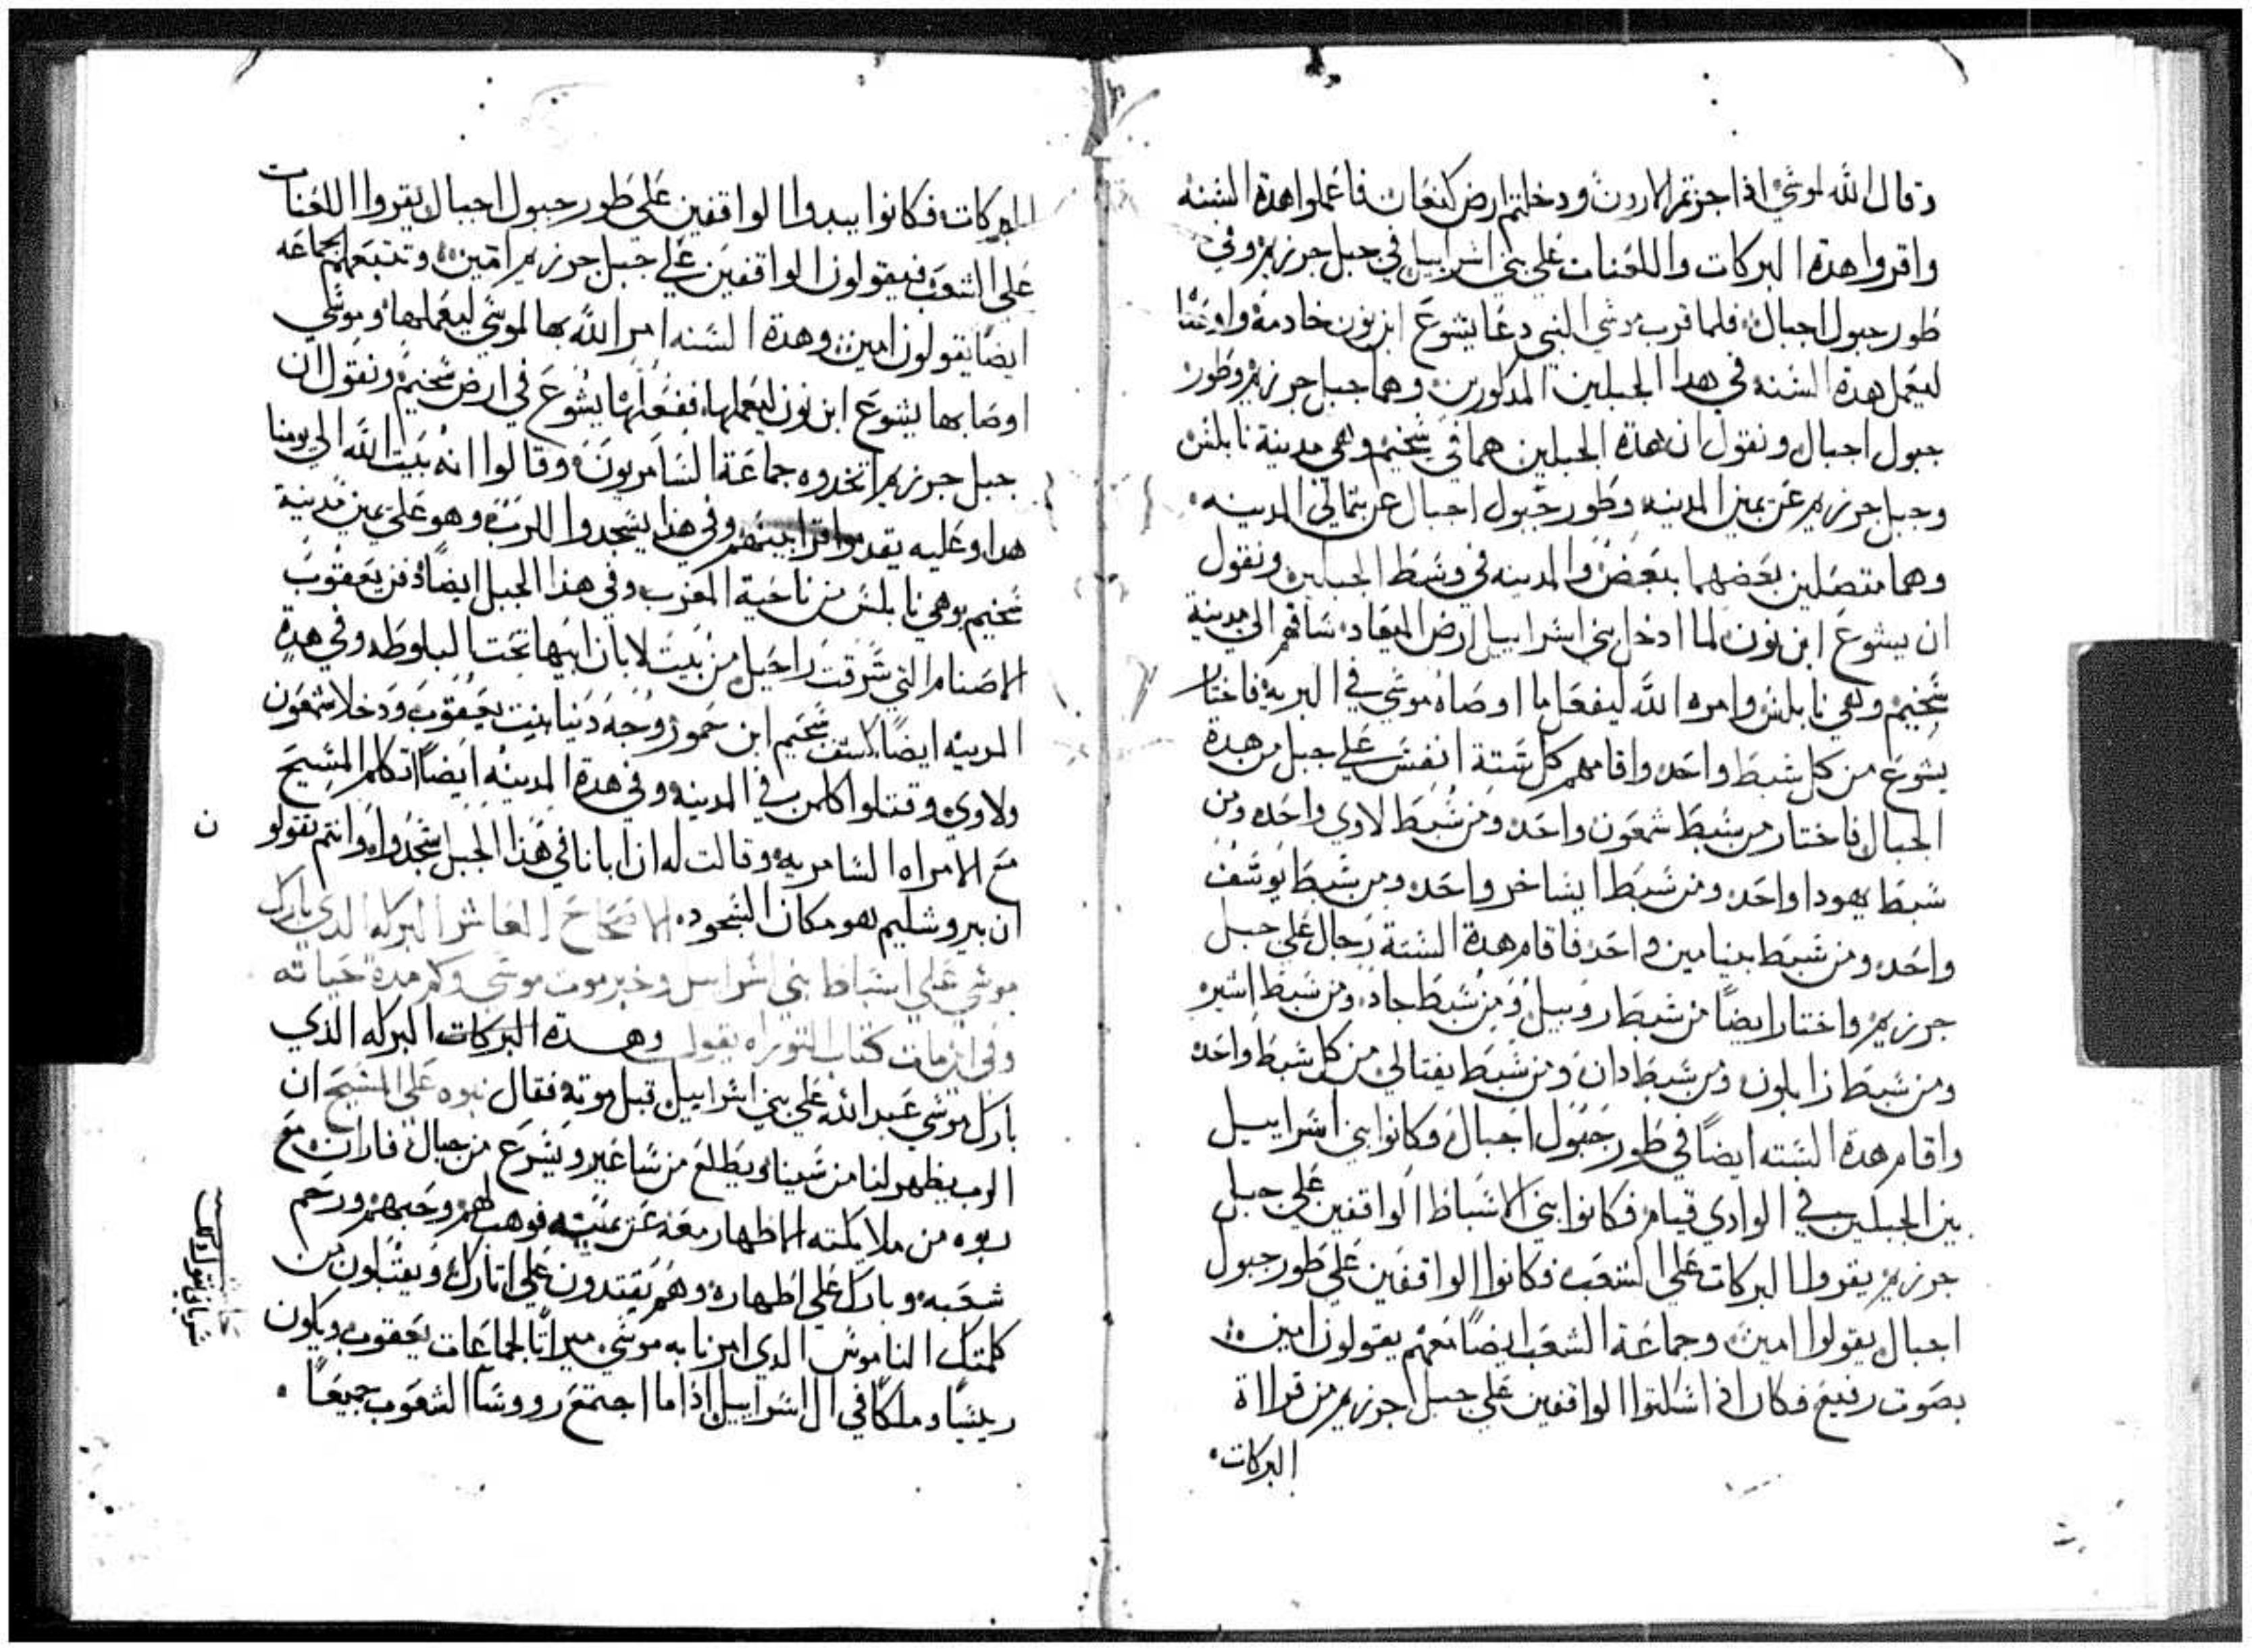 وقال الله لموسي اذا جزتم الاردن ودخلتم ارض كنعان فاعملوا هدة السنه
واقروا هدة البركات واللعنات علي بني اسراييل في جبل جرزيم وفي
طور جبول اجبال فلما قرب موسي النبي دعا يشوع ابن نون خادمه واوصا
ليعمل هدة السنه في هدا الجبلين المدكورين وهما جبل جرزيم وطور
جبول اجبال ونقول ان هدة الجبلين هما في شخيم وهي مدينة نابلس
وجبل جرزيم عن يمين المدينه وطور جبول اجبال عن شمالي المدينه
وهما متصلين بعضهما ببعض والمدينه في وسط الجبلين ونقول
ان يشوع ابن نون لما ادخل بني اسراييل ارض الميعاد ساقهم الي مدينة
شخيم وهي نابلس وامره الله ليفعل ما اوصاه موسي في البريه فاختار
يشوع من كل شبط واحد واقامهم كل ستة انفس علي جبل من هدة
الجبال فاختار من شبط شمعون واحد ومن شبط لاوي واحد ومن
شبط يهودا واحد ومن شبط ايساخر واحد ومن شبط يوسف
واحد ومن شبط بنيامين واحد فاقام هدة الستة رجال علي جبل
جرزيم واختار ايضا من شبط روبيل ومن شبط جاد ومن شبط اشير
ومن شبط زابلون ومن شبط دان ومن شبط نفتالي من كل شبط واحد
واقام هدة السته ايضا في طور جبول اجبال وكانوا بني اسراييل
بين الجبلين في الوادي قيام فكانوا بني الاسباط الواقفين علي جبل
جرزيم يقروا البركات علي الشعب فكانوا الواقفين علي طور جبول
اجبال يقولوا امين وجماعة الشعب ايضا معهم يقولون امين
بصوت رفيع فكان اذا اسكتوا الواقفين علي جبل جرزيم من قراة
البركات
البركات فكانوا يبدوا الواقفين علي طور جبول اجبال يقروا اللعنات
علي الشعب فيقولون الواقفين علي جبل جرزيم امين وتتبعهم الجماعه
ايضا يقولون امين وهدة السنه امر الله بها لموسي ليعملها وموسي
اوصا بها يشوع ابن نون ليعملها ففعلها يشوع في ارض شخيم ونقول ان
جبل جرزيم اتخدوه جماعة السامريون وقالوا انه بيت الله الي يومنا
هدا وعليه يقدموا قرابينهم وفي هذا يسجدوا للرب وهو علي يمين مدينة
شخيم وهي نابلس من ناحية المغرب وفي هذا الجبل ايضا دفن يعقوب
الاصنام التي سرقت راحيل من بيت لابان ابيها تحت البلوطه وفي هدة
المدينه ايضا شخيم ابن حمور زوجه دنيا بنت يعقوب ودخلا شمعون
ولاوي وقتلوا كلمن في المدينه وفي هدة المدينه ايضا اتكلم المسيح
مع الامراه السامريه وقالت له ان ابانا في هذا الجبل سجدوا وانتم تقولو
ن
ان يروشليم هو مكان السجود الاصحاح العاشر البركه الدي بارك
موسي علي اسباط بني اسراييل وخبر موت موسي وكم مدة حياته
كتاب التوراه يقول وهدة البركات البركه الذي
بارك موسي عبد الله علي بني اسراييل قبل موته فقال نبوه علي المسيح ان
الرب يظهر لنا من سينا ويطلع من ساعير ويشرع من جبال فاران مع
ربوه من ملايكته الاظهار معه عن يمينه فوهب لهم وحبهم ورحم
شعبه وبارك علي اظهاره وهم يقتدون علي اتارك ويقبلون من
كلمتك الناموس الدي امرنا به موسي ميراثا لجماعات يعقوب ويكون
ريسا وملكا في ال اسراييل اذا ما اجتمع رووسا الشعوب جميعا